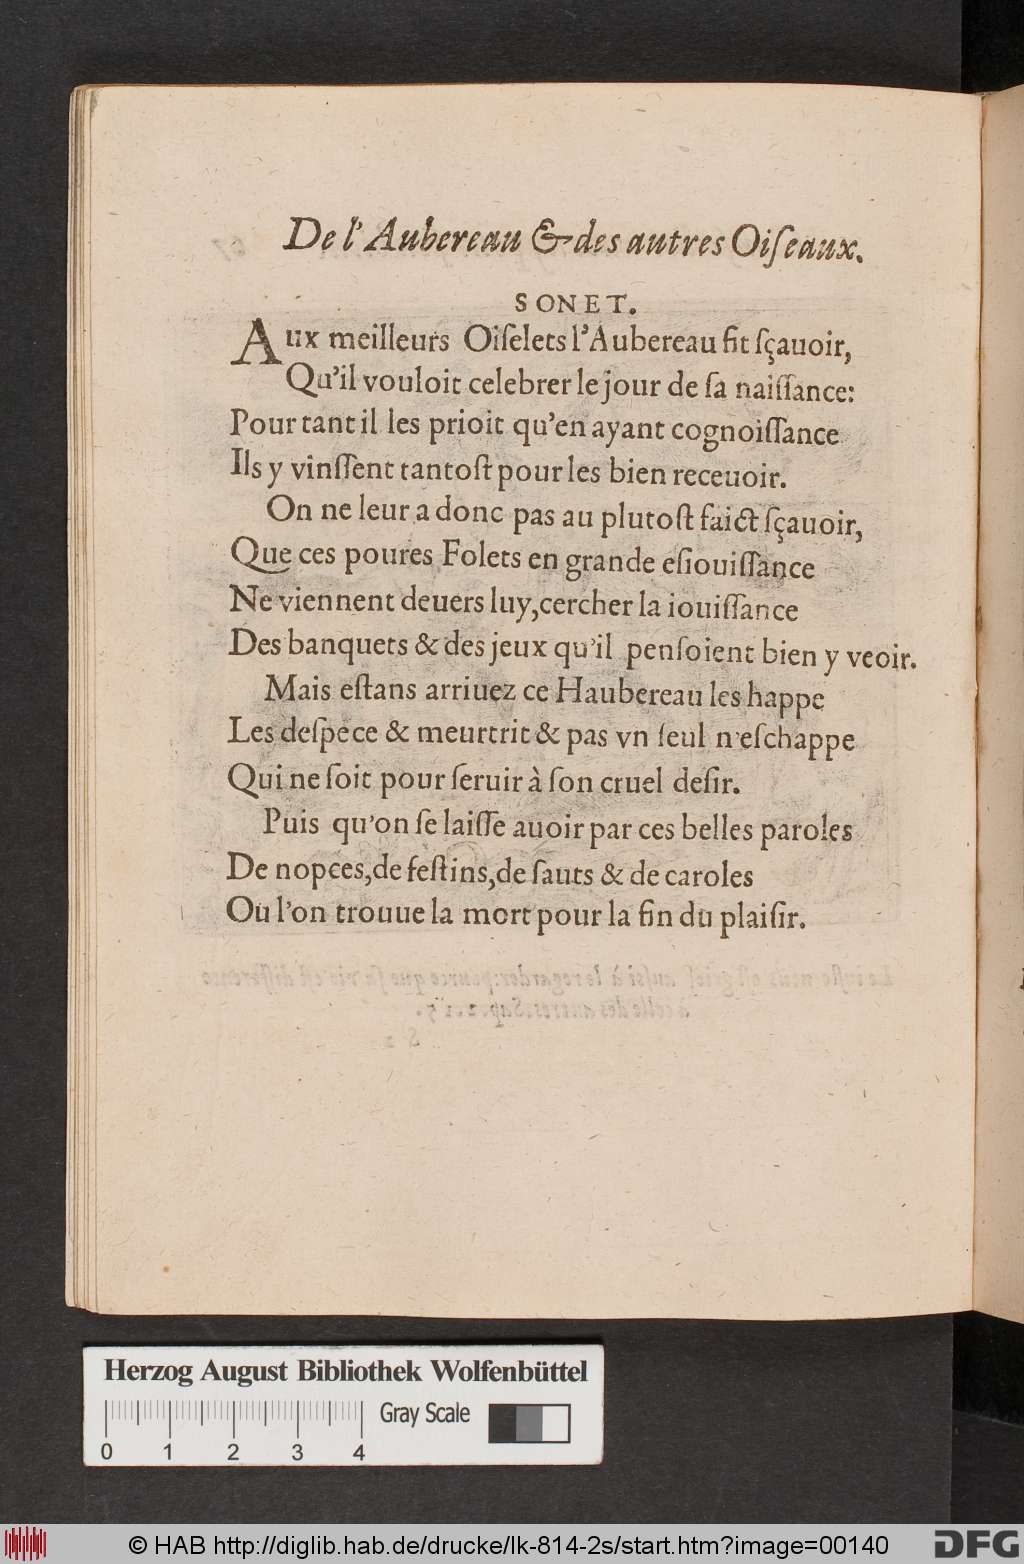 De l'Aubereau & des autres Oiſeaux.
SONET.
Aux meilleurs Oiſelets l'Aubereau fit ſçauoir,
Qu'il vouloit celebrer le jour de ſa naiſſance:
Pour tant il les prioit qu'en ayant cognoiſſance
Ils y vinſſent tantoſt pour les bien receuoir.
On ne leur a donc pas au plutoſt faict ſçauoir,
Que ces poures Folets en grande eſiouiſſance
Ne viennent deuers luy, cercher la iouiſſance
Des banquets & des jeux qu'il penſoient bien y veoir.
Mais eſtans arriuez ce Haubereau les happe
Les deſpece & meurtrit & pas vn ſeul n'eſchappe
Qui ne ſoit pour ſeruir à ſon cruel deſir.
Puis qu'on ſe laiſſe auoir par ces belles paroles
De nopces, de feſtins, de ſauts & de caroles
Ou l'on trouue la mort pour la fin du plaiſir.
Herzog August Bibliothek Wolfenbüttel
Gray Scale
0 1 2 3 4
© HAB http://diglib.hab.de/drucke/lk-814-2s/start.htm?image=00140
DFG